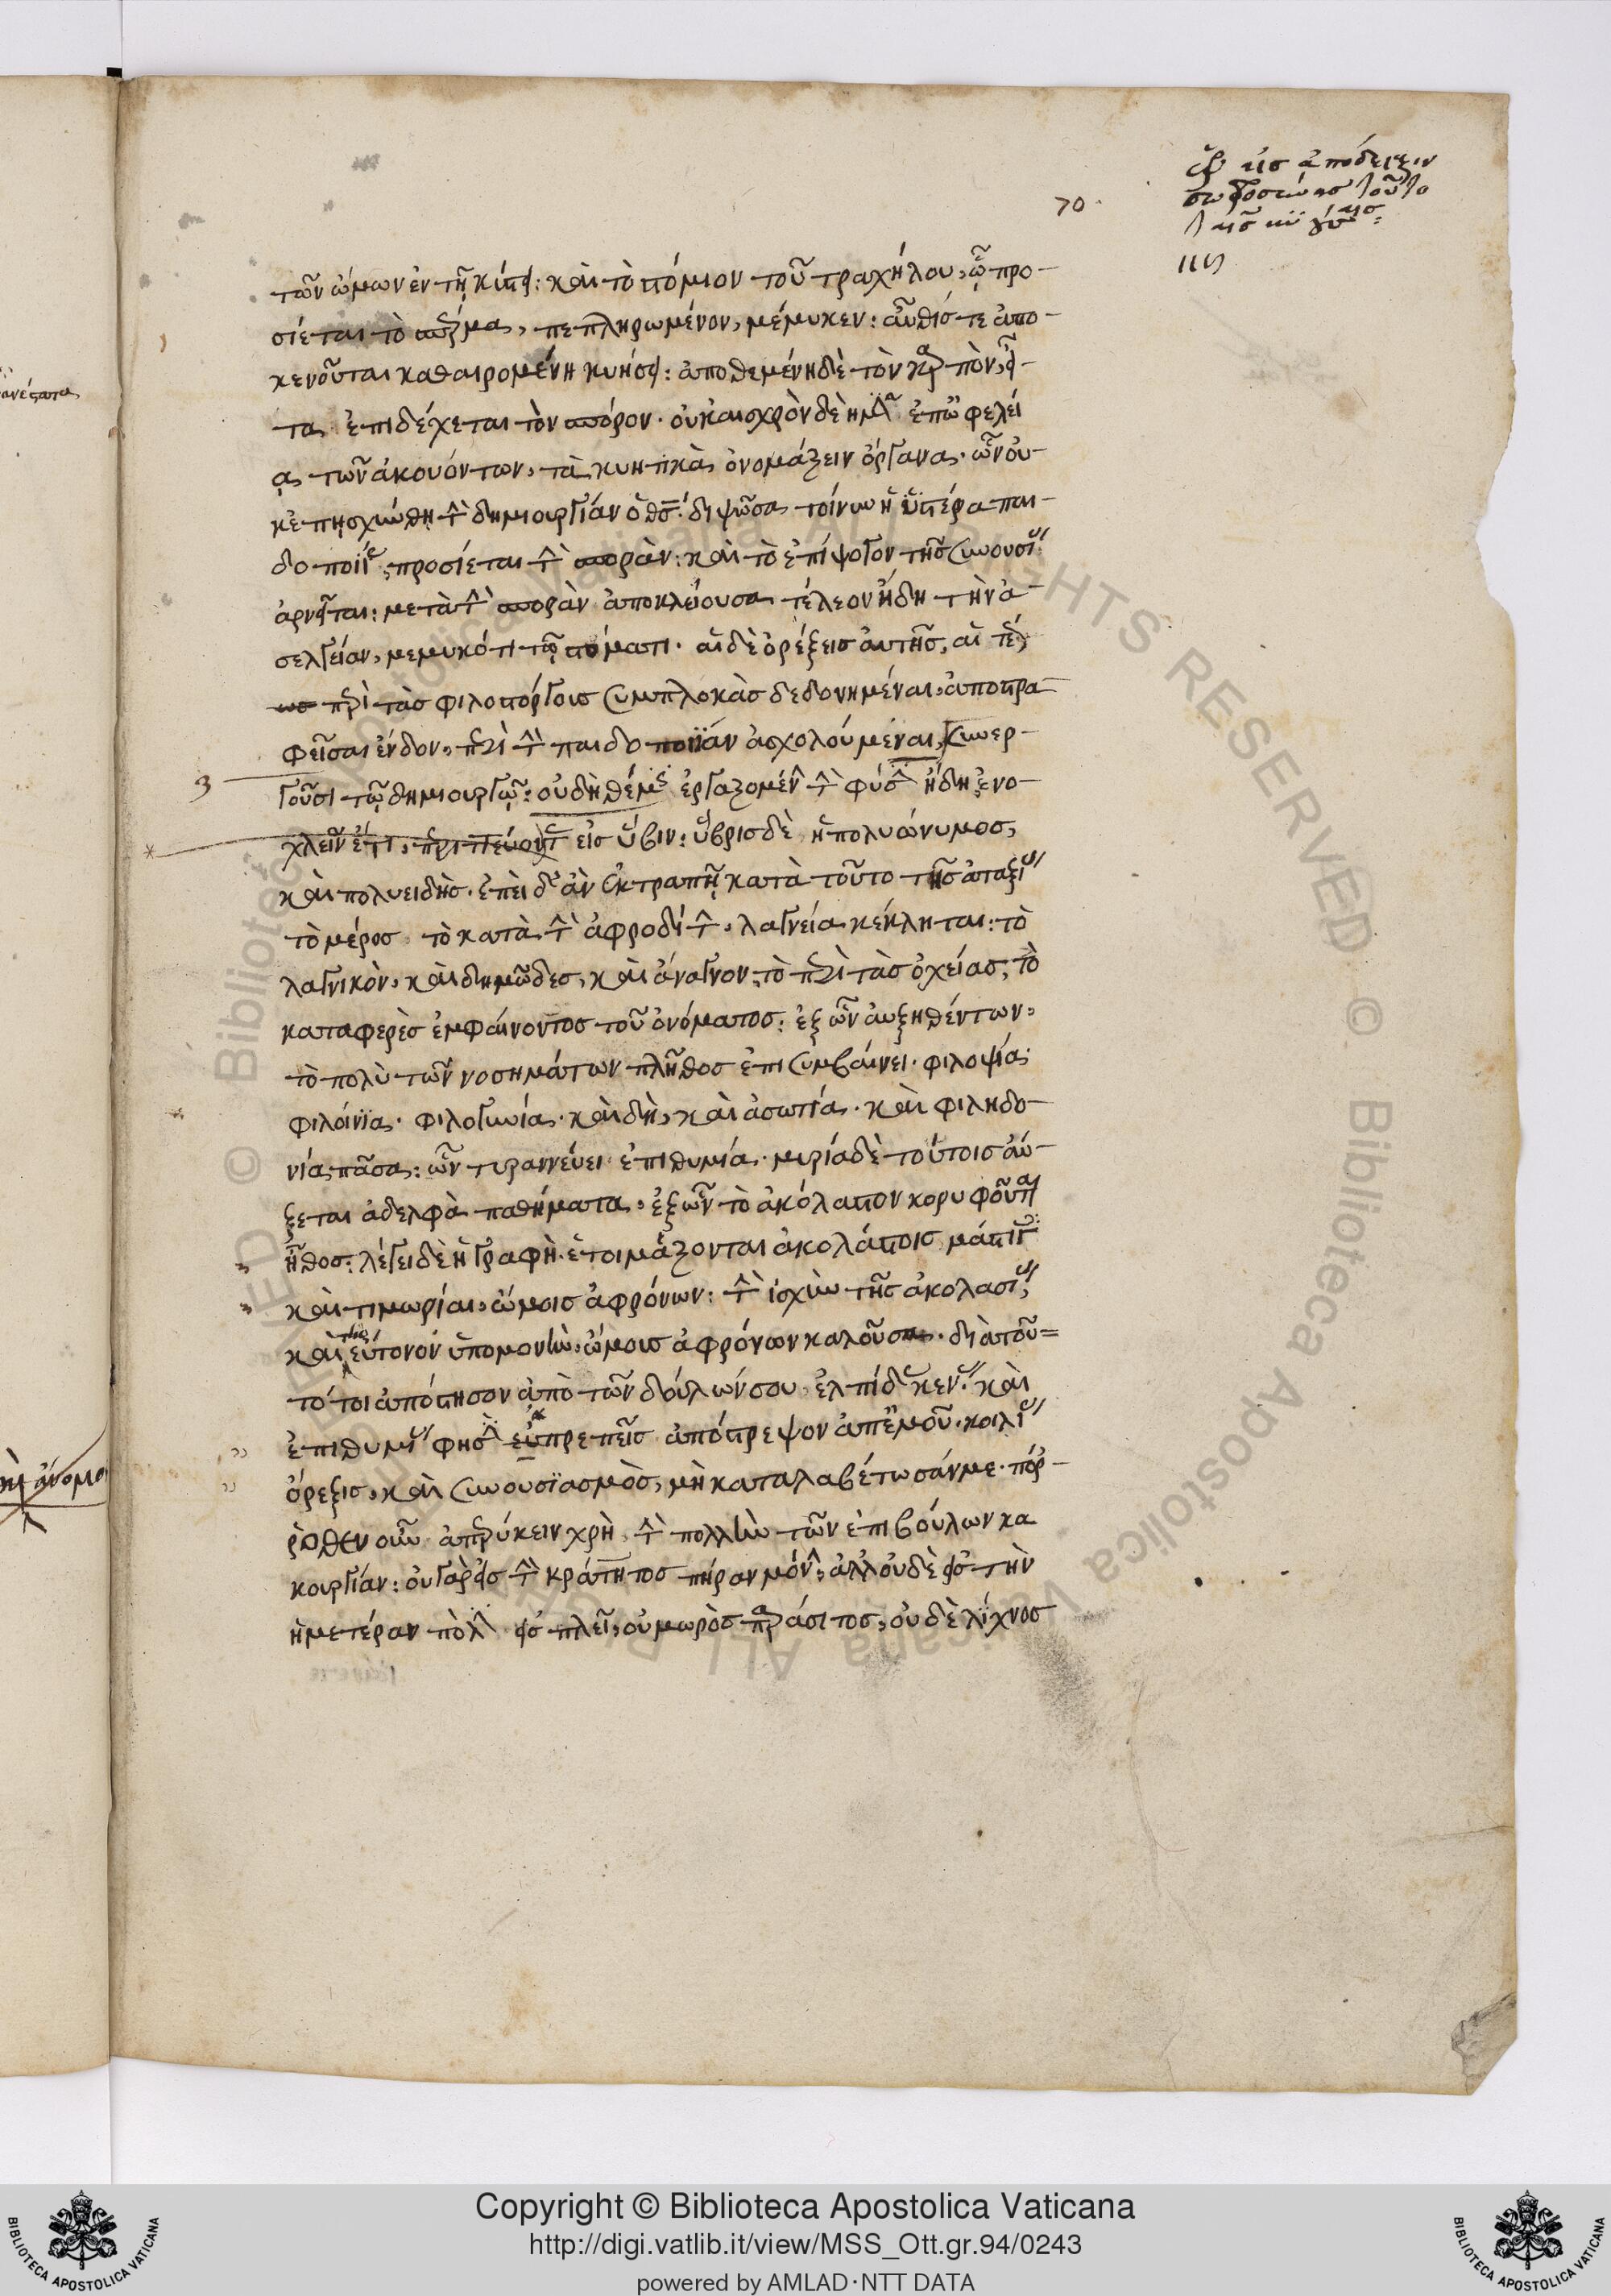 70
τῶν ὤμων ἐν τῇ κύστει: καὶ τὸ στόμιον τοῦ τραχήλου, ᾧ προ-
σίεται τὸ σπέρμα, πεπληρωμένον, μέμυκεν: αὖθίς τε ἀπο-
κενοῦται καθαιρομένη κυήσει: ἀποθεμένη δὲ τὸν καρπὸν, εἶ-
τα ἐπιδέχεται τὸν σπόρον. οὐκ αἰσχρὸν δὲ ἡμῖν ἐπ' ὠφελεί
ᾳ τῶν ἀκουόντων, τὰ κυητικὰ ὀνομάζειν ὄργανα. ὧν οὐ-
κ ἐπῃσχύνθη τὴν δημιουργίαν ὁ θς. διψῶσα τοίνυν ἡ ὑστέρα παι-
δοποιΐας, προσίεται τὴν σπορὰν: καὶ τὸ ἐπίψογον τῆς συνουσίας
ἀρνεῖται: μετὰ τὴν σπορὰν ἀποκλείουσα τέλεον ἤδη τὴν ἀ-
σέλγειαν, μεμυκότι τῷ στόματι. αἱ δὲ ὀρέξεις αὐτῆς, αἱ τέ
ως περὶ τὰς φιλοστόργους συμπλοκὰς δεδονημέναι, ἀποστρα-
φεῖσαι ἔνδον, περὶ τὴν παιδοποιΐαν ἀσχολούμεναι, συνερ-
γοῦσι τῷ δημιουργῷ: οὐ δὴ θέμις ἐργαζομένην τὴν φύσιν ἤδη ἐνο-
χλεῖν ἔτι, περιττεύοντας εἰς ὕβριν: ὕβρις δὲ ἡ πολυώνυμος,
καὶ πολυειδὴς. ἐπεὶ δ' ἂν ἐκτραπῇ κατὰ τοῦτο τῆς ἀταξίας
τὸ μέρος τὸ κατὰ τὴν ἀφροδίτην, λαγνεία κέκληται: τὸ
λαγνικὸν, καὶ δημῶδες, καὶ ἄναγνον, τὸ περὶ τὰς ὀχείας, τὸ
καταφερὲς ἐμφαίνοντος τοῦ ὀνόματος: ἐξ ὧν αὐξηθέντων,
τὸ πολὺ τῶν νοσημάτων πλῆθος ἐπισυμβαίνει. φιλοψία.
φιλοινία. φιλογυνία. καὶ δὴ, καὶ ἀσωτία. καὶ φιληδο-
νία πᾶσα: ὧν τυραννεύει ἐπιθυμία. μυρία δὲ τούτοις αὔ-
ξεται ἀδελφὰ παθήματα, ἐξ ὧν τὸ ἀκόλαστον κορυφοῦται
ἦθος: λέγει δὲ ἡ γραφὴ. ἑτοιμάζονται ἀκολάστοις μάστιγες
καὶ τιμωρίαι, ὤμοις ἀφρόνων: τὴν ἰσχὺν τῆς ἀκολασίας,
καὶ τὴν εὔτονον ὑπομονὴν, ὤμοις ἀφρόνων καλοῦσα. διὰ τοῦ=
τό τοι ἀπόστησον ἀπὸ τῶν δούλων σου ἐλπίδας κενὰς. καὶ
ἐπιθυμίας φησὶν εὐπρεπεῖς ἀπόστρεψον ἀπ' ἐμοῦ. κοιλίας
ὄρεξις, καὶ συνουσϊασμὸς, μὴ καταλαβέτωσάν με. πόρ-
ρωθεν οὖν ἀπερύκειν χρὴ τὴν πολλὴν τῶν ἐπιβούλων κα
κουργίαν: οὐ γὰρ εἰς τὴν κράτητος πήραν μόνην, ἀλλ' οὐδὲ εἰς τὴν
ἡμετέραν πόλιν εἰσπλεῖ, οὐ μωρὸς παράσιτος, οὐδὲ λίχνος